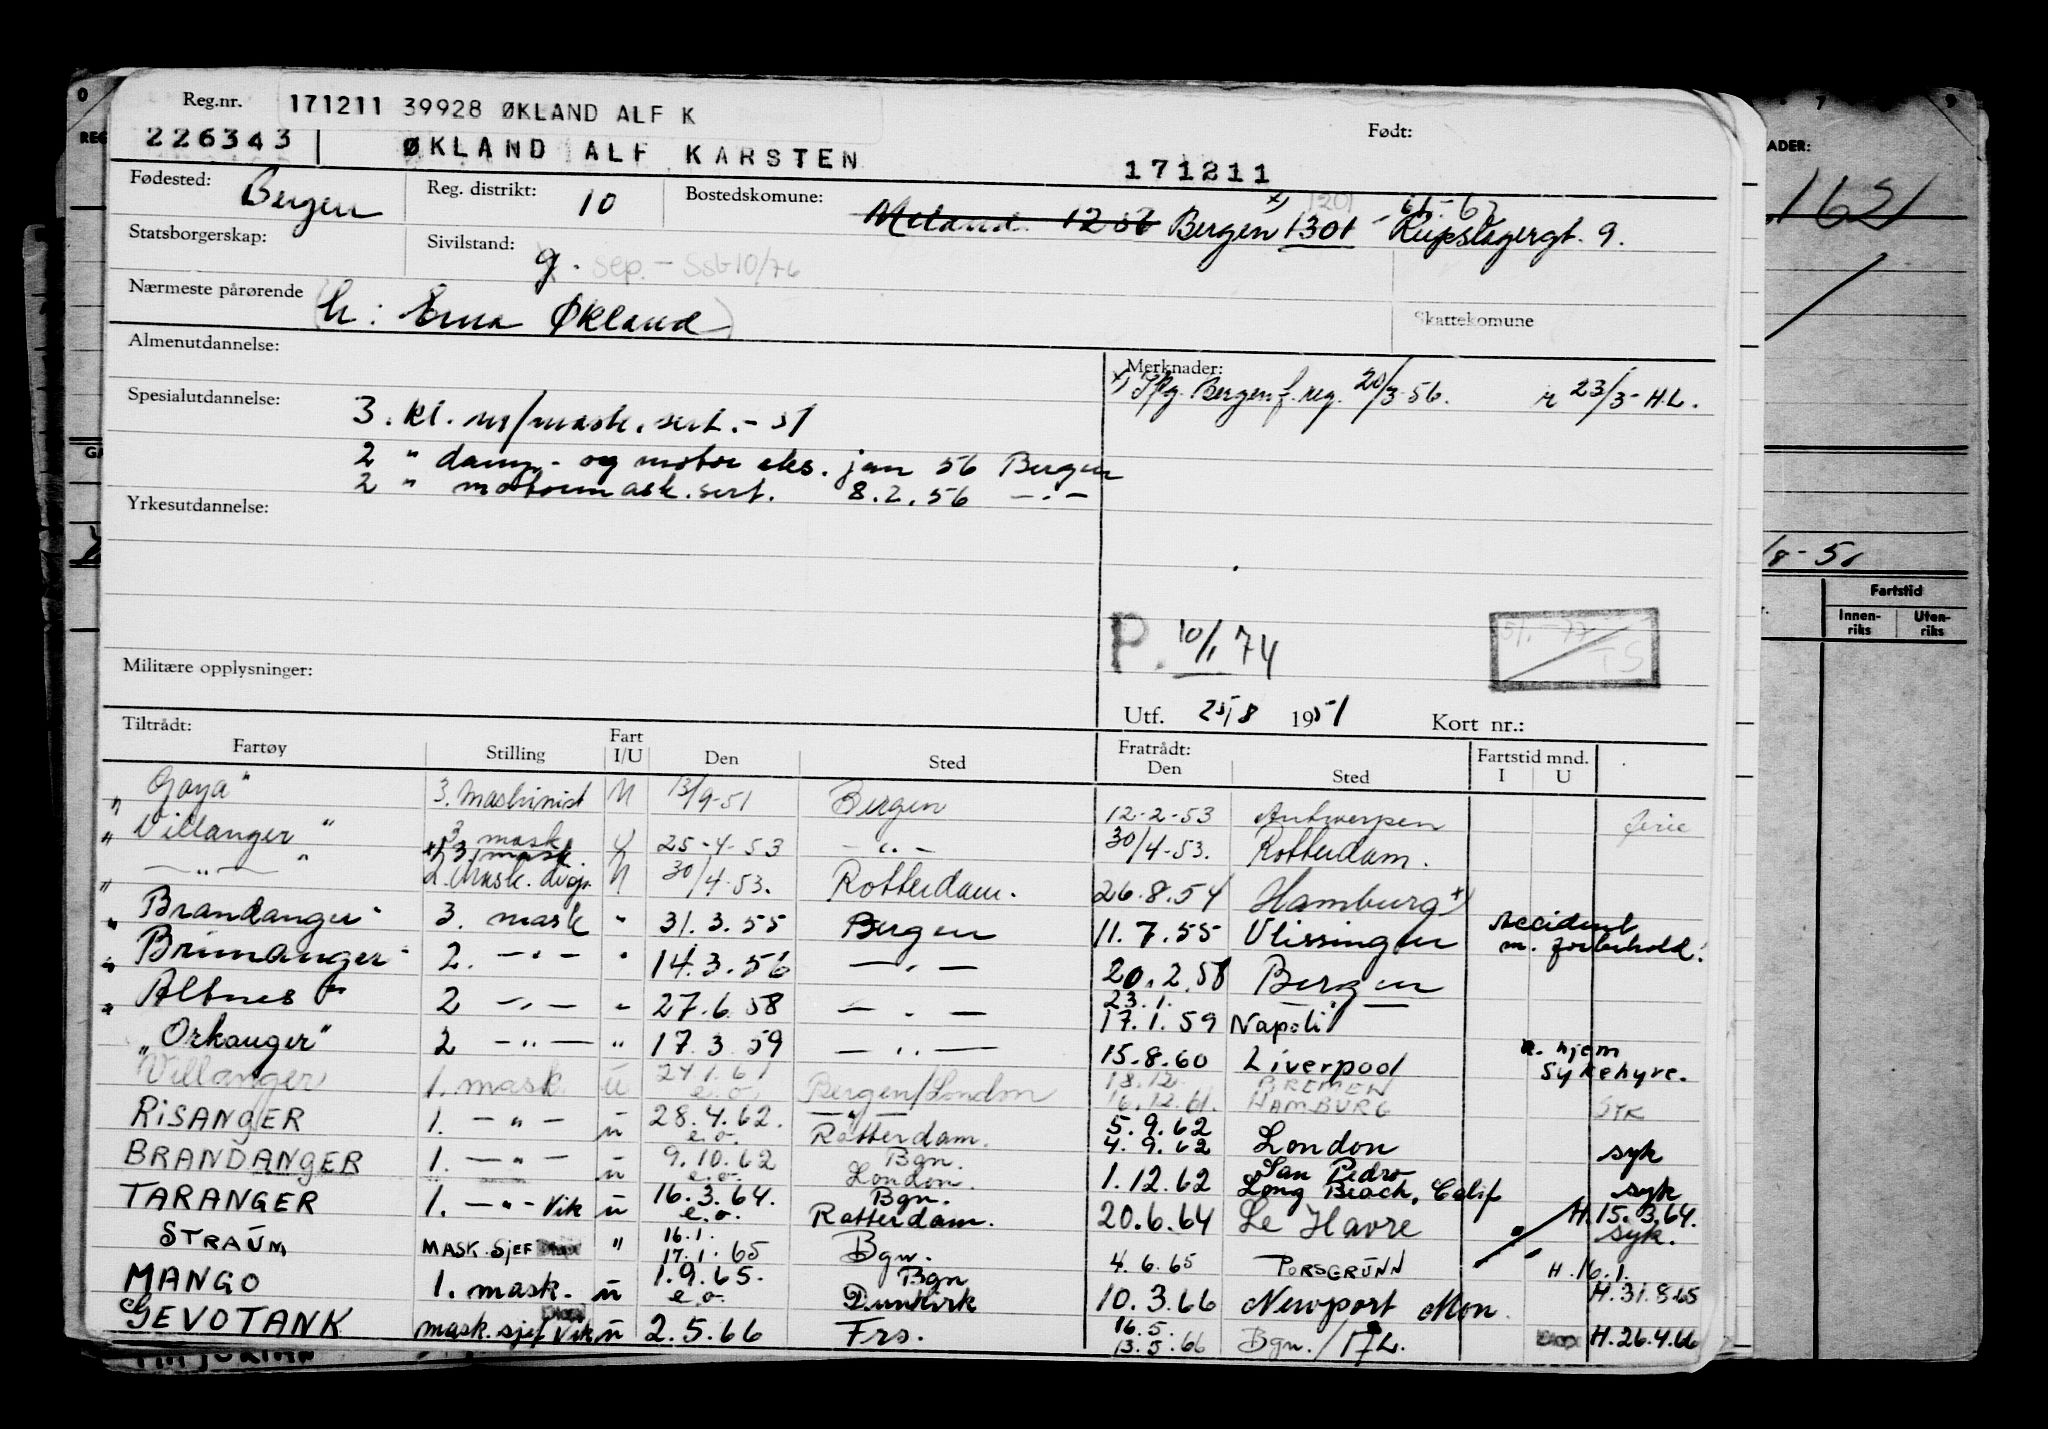 Reg.nr. 171211 39928 ØKLAND ALF K
Født:
226343 ØKLAND ALF KARSTEN 171211
Fødested: Bergen Reg. distrikt: 10 Bostedskomune: Meland Bergen 1301 - Repslagergt. 9.
Statsborgerskap: Sivilstand: g. sep. - SSB 10/76
Nærmeste pårørende (h: Erna Økland) Skattekomune
Almenutdannelse: Merknader:
x) Bergen f. reg. 20/3-56. r 23/3- H.L.
Spesialutdannelse: 3. kl. m/mask. sert. - 51
2 " damp- og motor eks. jan 56 Bergen
2 " motormask.sert. 8.2.56 — " —
Yrkesutdannelse:
P. 10/1 74
Militære opplysninger:
Utf. 25/8 1951 Kort nr.:
Tiltrådt: Fratrådt:
Fartøy Stilling Fart I/U Den Sted Den Sted Fartstid mnd. I U
" Gaya " 3. Maskinist U 13/9-51 Bergen 12-2-53 Antwerpen ferie
" Villanger " 3 mask. U 25-4-53 — " — 30/4-53. Rotterdam.
x) 3. mask.
" — " — " 2. Mask. U 30/4-53. Rotterdam. 26.8.54 Hamburg x)
" Brandanger " 3. mask " 31.3.55 Bergen 11.7.55 Vlissingen Accident m. forbehold!
" Brimanger " 2. — " — " 14.3.56 — " — 20.2.58 Bergen
" Altnes " 2 — " — " 27.6.58 — " — 23.1. 17.1.59 — " — Napoli
" Orkanger " 2 — " — " 17.3.59 — " — 15.8.60 Liverpool hjem sykehyre.
Villanger 1. mask u 24.1.61 e.o. Bergen/London 18.12. 16.12.61. BREMEN HAMBURG SYK
RISANGER 1. — " — u 28.4.62. e.o. — " — Rotterdam. 5.9.62 4.9.62 London syk
BRANDANGER 1. — " — u 9.10.62 e.o. Bgn. London. 1.12.62 San Pedro Long Beach, Calif syk
TARANGER 1. — " — Vik u 16.3.64. e.o. Bgn. Rotterdam. 20.6.64 Le Havre H.15.3.64. syk.
STRAUM MASK.SJEF " 16.1. 17.1.65 Bgn. 4.6.65 PORSGRUNN H.16.1.
MANGO 1. mask. u 1.9.65. e.o. Bgn Dunkirk 10.3.66 Newport Mon. H.31.8.65
GEVOTANK mask.sjef Vik u 2.5.66 Frs. 16.5. 13.5.66 Bgn. / H.26.4.66
REG
ADER:
1621
/8-51
Fartstid
Innen-riks Uten-riks